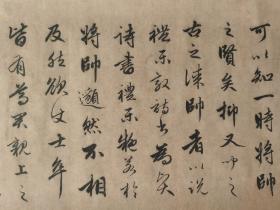 可以知一時將帥
之賢矣抑又聞之
古之謀帥者以說
禮樂敦詩書為賢
詩書禮樂施若於
將帥邈然不相
及然欲文士卒
皆有尊君親上之